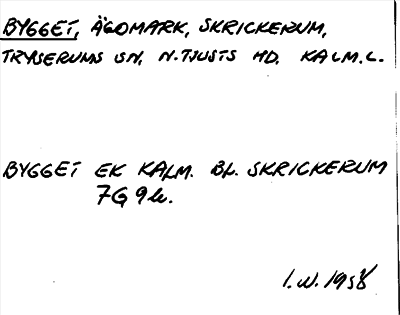 BYGGET, ÄGOMARK, SKRICKERUM,
TRYSERUMS SN, N. TJUSTS HD. KALM. L.
BYGGET EK KALM. BL. SKRICKERUM
7G 9h.
I. W. 1958